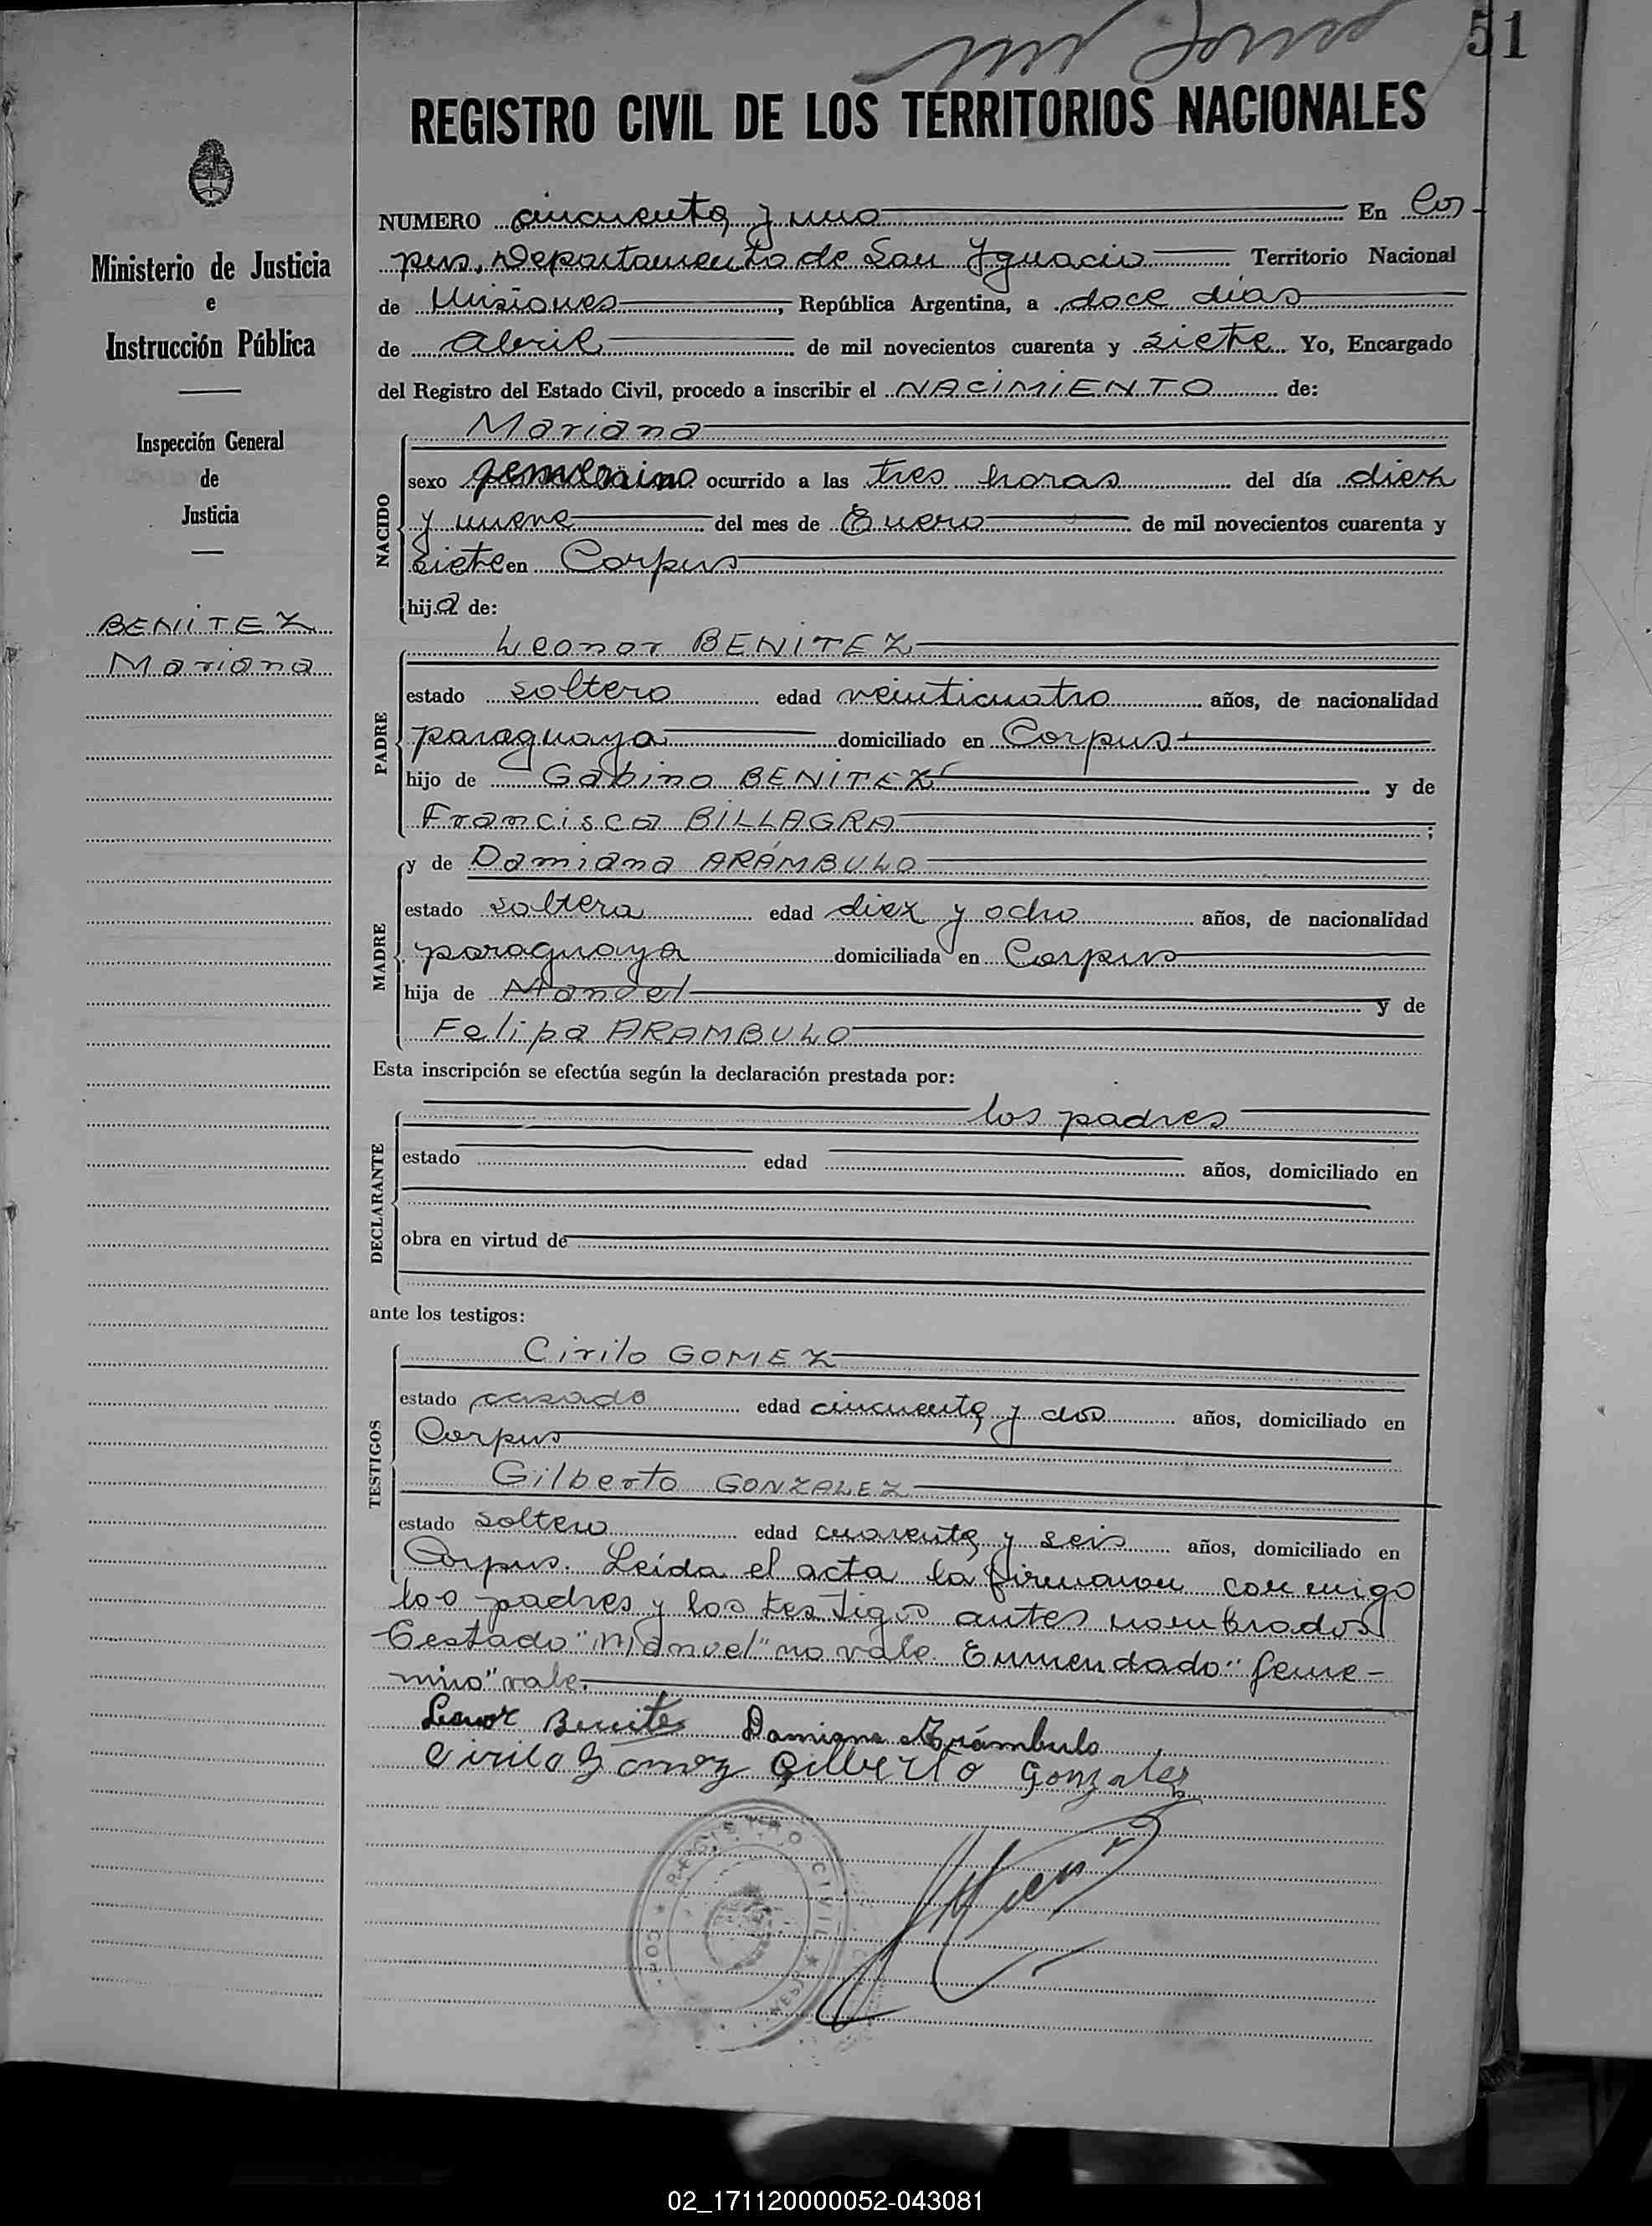 51
REGISTRO CIVIL DE LOS TERRITORIOS NACIONALES
Ministerio de Justicia
e
Instrucción Pública
Inspección General
de
Justicia
BENITEZ
Mariana
NUMERO cincuenta y uno En Cor-
pus, Departamento de San Ygnacio Territorio Nacional
de Misiones, República Argentina, a doce días
de Abril de mil novecientos cuarenta y siete Yo, Encargado
del Registro del Estado Civil, procedo a inscribir el NACIMIENTO de:
NACIDO
Mariana
sexo femenino ocurrido a las tres horas del día diez
y nueve del mes de Enero de mil novecientos cuarenta y
siete en Corpus
hija de:
PADRE
Leonor BENITEZ
estado soltero edad veinticuatro años, de nacionalidad
paraguaya domiciliado en Corpus
hijo de Gabino BENITEZ y de
Francisca BILLAGRA;
MADRE
y de Damiana ARÁMBULO
estado soltera edad diez y ocho años, de nacionalidad
paraguaya domiciliada en Corpus
hija de Manuel y de
Felipa ARAMBULO
Esta inscripción se efectúa según la declaración prestada por:
DECLARANTE
los padres
estado edad años, domiciliado en
obra en virtud de
ante los testigos:
TESTIGOS
Cirilo GOMEZ
estado casado edad cincuenta y dos años, domiciliado en
Corpus
Gilberto GONZALEZ
estado soltero edad cuarenta y seis años, domiciliado en
Corpus. Leída el acta la firmaron conmigo
los padres y los testigos antes nombrados
Testado "Manuel" no vale. Enmendado "feme-
nino" vale.
Leonor Benites Damiana Arámbulo
Cirilo Gomez Gilberto Gonzalez
REGISTRO CIVIL
02_171120000052-043081